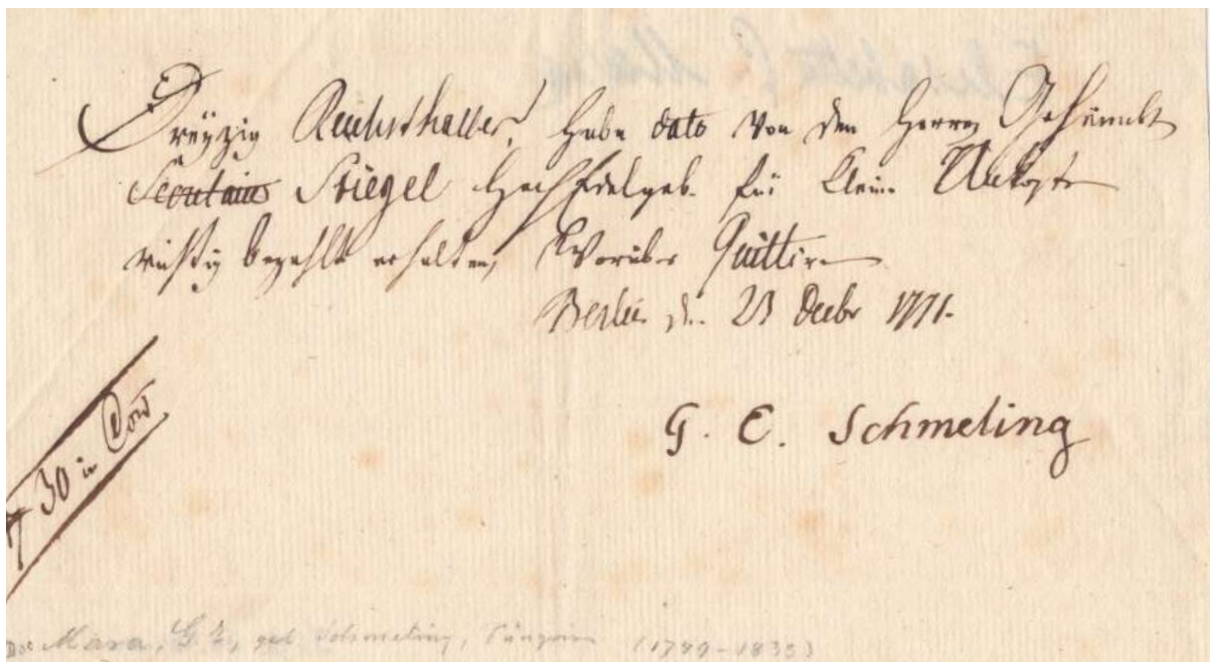 Dreyzig Reichsthaller, habe dato von dem Herrn
Secretaire Stiegel HochEdelgeb. für kleine Unkosten
richtig bezahlt erhalten, Worüber Quittire
Berlin d. 23 Decbr 1771.
G. E. Schmeling
30 in
Mara, G. E., geb. Schmeling, Sängerin (1749-1833)